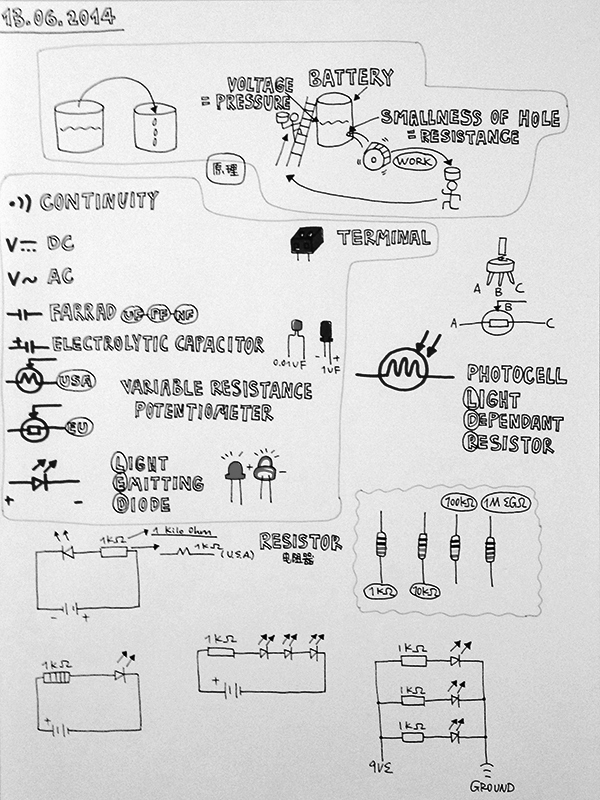 13.06.2014
VOLTAGE
= PRESSURE
BATTERY
SMALLNESS OF HOLE
= RESISTANCE
WORK
原理
•)) CONTINUITY
V⎓ DC
V~ AC
TERMINAL
FARRAD UF PF NF
ELECTROLYTIC CAPACITOR
0.01UF
- +
1UF
USA
VARIABLE RESISTANCE
POTENTIOMETER
EU
LIGHT
EMITTING
DIODE
+ -
+ -
A B C
B
A C
PHOTOCELL
LIGHT
DEPENDANT
RESISTOR
100KΩ 1MEGΩ
1KΩ 10KΩ
1KΩ
1 Kilo Ohm
1KΩ
(U.S.A)
- +
RESISTOR
电阻器
1KΩ
+
1KΩ
+
1KΩ
1KΩ
1KΩ
9VΞ
GROUND